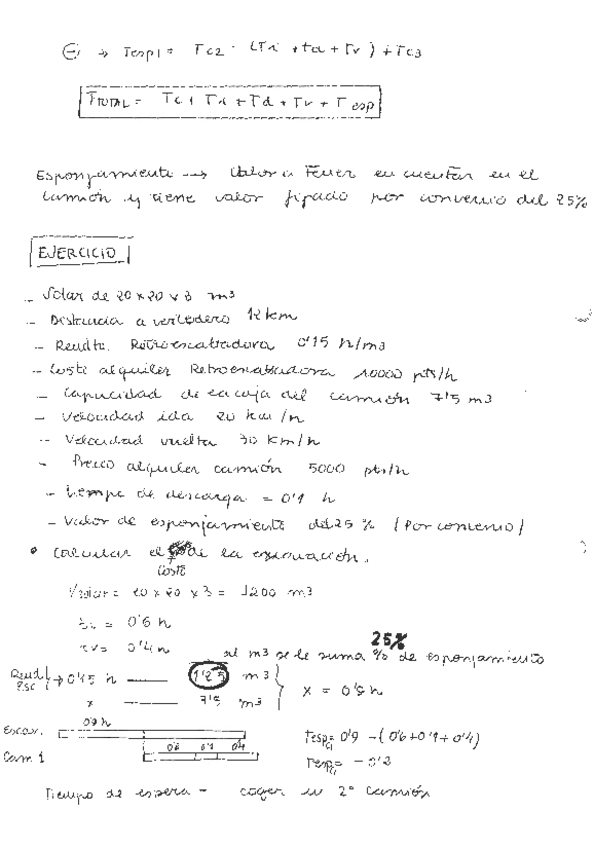 ⊖ → Tesp1 = Tc2 - (Ti + td + Tv) + Tc3
TTOTAL = Tc + Ti + Td + Tv + Tesp
Esponjamiento → Valor a tener en cuenta en el
camión y tiene valor fijado por convenio del 25%
EJERCICIO
- Solar de 20 x 20 x 3 m3
- Distancia a vertedero 12 km
- Rendto. Retroexcabadora 0'15 h/m3
- Coste alquiler Retroexcabadora 10000 pts/h
- Capacidad de la caja del camión 7'5 m3
- Velocidad ida 20 km/h
- Velocidad vuelta 30 km/h
- Precio alquiler camión 5000 pts/h
- tiempo de descarga = 0'1 h
- Valor de esponjamiento del 25 % (Por convenio)
• Calcular el coste de la excavación.
Vsolar = 20 x 20 x 3 = 1200 m3
ti = 0'6 h
tv = 0'4 h
al m3 se le suma 25% de esponjamiento
Rend Esc → 0'15 h — 1'25 m3
x — 7'5 m3
x = 0'9 h
0'9 h
Escav.
0'6 0'1 0'4
Cam. 1
Tesp C1 = 0'9 - (0'6 + 0'1 + 0'4)
Tesp C1 = - 0'2
Tiempo de espera - coger un 2º camión